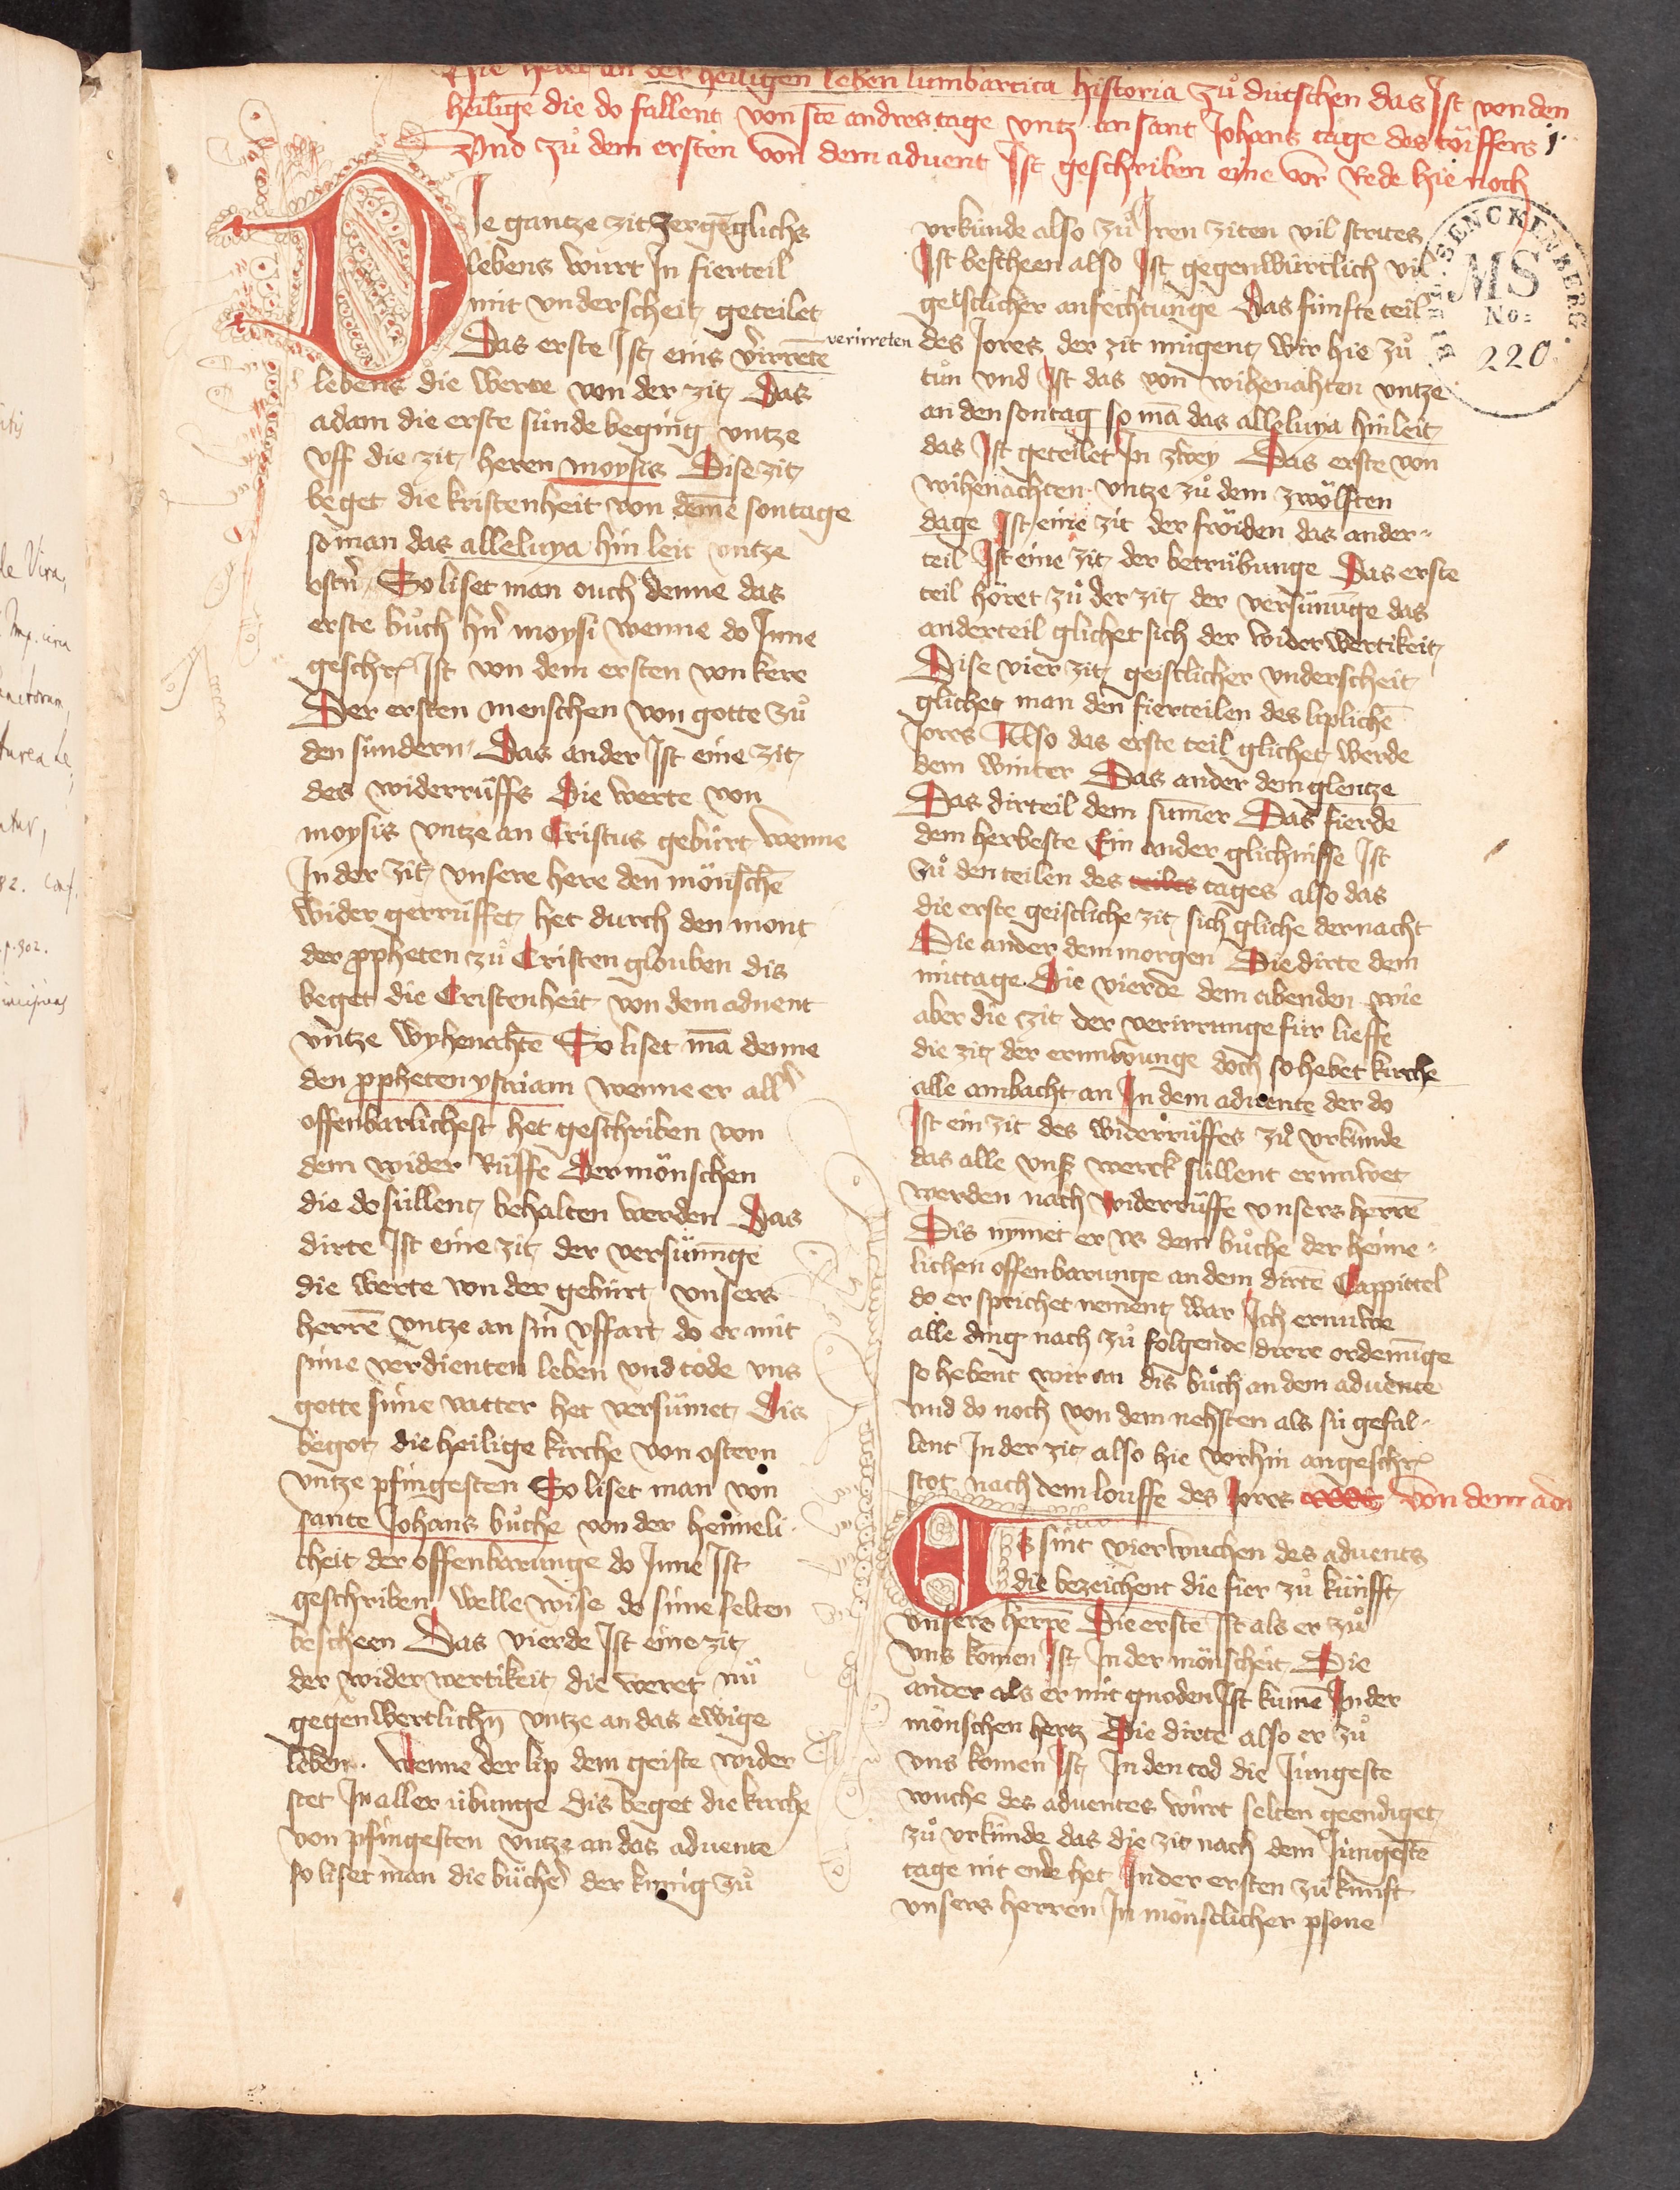 Hie hebet an der heiligen leben lumbartica historia zuͦ dütschen das Ist von den
heilige die do fallent von scte andres tage vntz an sant Johans tage des toͤiffers
Vnd zuͦ dem ersten von dem aduent Ist geschriben eine vor Rede hie noch
1.
DIe gantze zit zergēglichs
lebens wurt In fierteil
mit vnderscheit geteilet
Das erste Ist eins v̉irrete
verirreten
lebens die werte von der zit Das
adam die erste sünde beging vntze
vff die zit heren moyses Dise zit
beget die kristenheit von deme sontage
so man das alleluya hin leit vntze
ostn̉ So liset man ouch denne das
erste buͦch hn̉ moysi wenne do Inne
geschr Ist von dem ersten von kere
Der ersten menschen von gotte zuͦ
den sündern Das ander Ist eine zit
des widerruͤffs Die werte von
moyses vntze an Cristus gebürt wenne
In der zit vnsere here den moͤnschē
wider gerruͤffet het durch den mont
der ppheten zuͦ Cristen glouben dis
beget die Cristenheit von dem aduent
vntze wyhenachtē So liset mā denne
den ppheten ysaiam wenne er all
offenbarlichest het geschriben von
dem wider Ruͤffe Der moͤnschen
die do süllent behalten werden Das
dirte Ist eine zit der versünūge
die werte von der gebürt vnsers
herrē vntze an sin vffart do er mit
sime verdienten leben vnd tode vns
gotte sime vatter het versünet Dis
begot die heilige kirche von ostern
vntze pfingesten So liset man von
sante Johans buͦche von der heimeli
cheit der offenbarunge do Inne Ist
geschriben welle wise do sime selten
bescheen Das vierde Ist eine zit
der wider wertikeit die weret nü
gegenwertlichn̄ vntze an das ewige
leben. Wenne der lip dem geiste wider
stet In aller übunge dis beget die kirche
von pfingesten vntze an das aduente
so liset man die büchē der künig zuͦ
vrkunde also zuͦ Iren ziten vil strites
Ist bescheen also Ist gegenwürtlich vil
geistlicher anfechtunge Das fünfte teil
des Jores der zit mügent wir hie zuͦ
tuͦn vnd Ist das von wihenahten vntze
an den sontag so mā das alleluya hin leit
das Ist geteilet In zwey Das erste von
wihenachten vntze zuͦ dem zwoͤlften
dage Ist eine zit der froͤiden das ander
teil Ist eine zit der betruͤbunge Das erste
teil hoͤret zuͦ der zit der versünūge das
anderteil glichet sich der widerwertikeit
Dise vier zit geistlicher vnderscheit
glichet man den fierteilen des liplichē
Jores Also das erste teil glichet werde
dem winter Das ander dem glentze
Das dirteil dem sum̄er Das fierde
dem herbeste Ein ander glichnisse Ist
zuͦ den teilen des teiles tages also das
die erste geistliche zit sich gliche der nacht
Die ander dem morgen Die dirte dem
mittage Die vierde dem abenden wie
aber die zit der verirrunge für lieffe
die zit der ernuwunge doch so hebet kirche
alle ambacht an In dem aduente der do
Ist ein zit des widerruͤffes zuͦ vrkunde
das alle vnß werck süllent ernuwet
werden nach widerruͤffe vnsers herrē
Dis nymet er vs dem buͦche der heime
lichen offenbarunge an dem dirtē Cappittel
do er sprichet nement war Ich ernuwe
alle ding nach zuͦ folgende dirre ordenūge
so hebent wir an dis buͦch an dem aduente
vnd do noch von dem nehsten als sü gefal
lent In der zit also hie vorhin angeschr
stot nach dem louffe des Jores von dem adu
Es sint vier wuchen des aduents
die bezeichent die fier zuͦ künfft
vnsers herrē Die erste Ist als er zuͦ
vns komen Ist In der moͤnscheit Die
ander als er mit gnoden Ist kumē In der
moͤnschen hertz Die dirte also er zuͦ
vns komen Ist In den tod die Jüngeste
wuche des aduentes wurt selten geendiget
zuͦ vrkunde das die zit nach dem Jüngestē
tage nit ende het In der ersten zuͦ kunft
vnsers herren In moͤnschlicher psone
SENCKENBERG.
MS
No:
220.